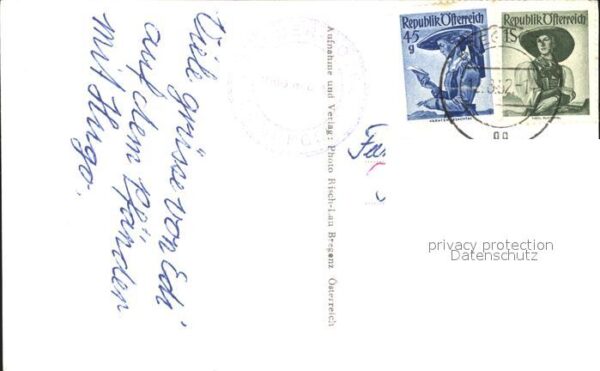 Viele grüsse von Edi
auf dem Pfänder
mit Hugo.
Aufnahme und Verlag: Photo Risch-Lau Bregenz Österreich
Republik Österreich
45
g
Republik Österreich
1S
privacy protection
Datenschutz